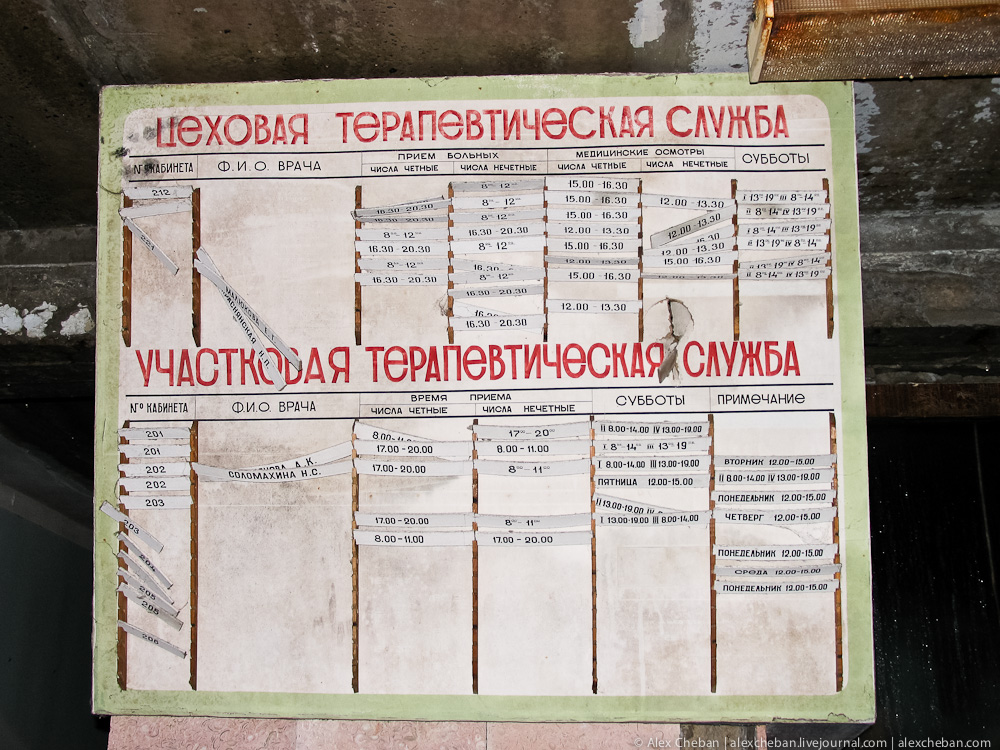 ЦЕХОВАЯ ТЕРАПЕВТИЧЕСКАЯ СЛУЖБА
№ КАБИНЕТА Ф.И.О. ВРАЧА ПРИЕМ БОЛЬНЫХ МЕДИЦИНСКИЕ ОСМОТРЫ СУББОТЫ
ЧИСЛА ЧЕТНЫЕ ЧИСЛА НЕЧЕТНЫЕ ЧИСЛА ЧЕТНЫЕ ЧИСЛА НЕЧЕТНЫЕ
212 8°° 12°° 15.00-16.30
15.00-16.30 12.00-13.30 I 13°°19°° III 8°°14°°
16.30-20.30 8°°-12°°
8°°-12°° 15.00-16.30 II 8°°14°° IV 13°°19°°
221 8°°-12°° 16.30-20.30 12.00-13.30 12.00-13.30 I 8°°14°° III 13°°19°°
16.30-20.30 8°°-12°° 15.00-16.30 12.00-13.30 II 13°°19°° IV 8°°14°°
8°°-12°° 16.30 12.00-13.30 15.00-16.30 I 13°°19°° III 8°°-14°°
16.30-20.30 8°°-12°° 15.00-16.30 II 8°°14°° IV 13°°19°°
16.30-20.30
12.00-13.30
16.30-20.30
УЧАСТКОВАЯ ТЕРАПЕВТИЧЕСКАЯ СЛУЖБА
№ КАБИНЕТА Ф.И.О. ВРАЧА ВРЕМЯ ПРИЕМА СУББОТЫ ПРИМЕЧАНИЕ
ЧИСЛА ЧЕТНЫЕ ЧИСЛА НЕЧЕТНЫЕ
201 8.00-11.00 17°°-20°° II 8.00-14.00 IV 13.00-19.00
201 17.00-20.00 8.00-11.00 I 8°°-14°° III 13°°19°°
202 СОЛОМАХИНА Н.С. 17.00-20.00 8°°-11°° I 8.00-14.00 III 13.00-19.00 ВТОРНИК 12.00-15.00
202 ПЯТНИЦА 12.00-15.00 II 8.00-14.00 IV 13.00-19.00
203 II 13.00-19.00 ПОНЕДЕЛЬНИК 12.00-15.00
203 17.00-20.00 8°°-11°° I 13.00-19.00 III 8.00-14.00 ЧЕТВЕРГ 12.00-15.00
8.00-11.00 17.00-20.00
204 ПОНЕДЕЛЬНИК 12.00-15.00
205 СРЕДА 12.00-15.00
205 ПОНЕДЕЛЬНИК 12.00-15.00
206
© Alex Cheban | alexcheban.livejournal.com | alexcheban.com